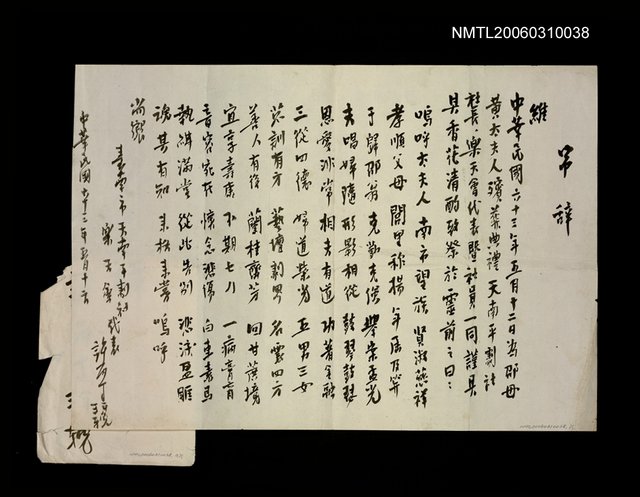 NMTL20060310038
吊辞
維
中華民國六十三年五月十二日為邵母
黃太夫人殯葬典禮 天南平劇社
社長、樂天會代表暨社員一同謹具
具香花清酌致祭於靈前之曰：
嗚呼太夫人 南市望族 賢淑慈祥
孝順父母 閭里称揚 年居及笄
于歸邵翁 克勤克儉 舉案孟光
夫唱婦隨 形影相從 鼓琴鼓瑟
恩愛非常 相夫有道 功著金融
三從四德 婦道榮光 五男三女
義訓有方 藝壇 名震四方
善人有後 蘭桂齊芳 回甘蔗境
宜享壽康 不期七八 一病膏肓
音容宛在 懷念悲傷 白車素馬
執紼滿堂 從此告別 悲淚盈眶
魂其有知 來格來嘗 嗚呼
尚饗
台南市天南平劇社代表
樂天會
中華民國六十三年五月十二